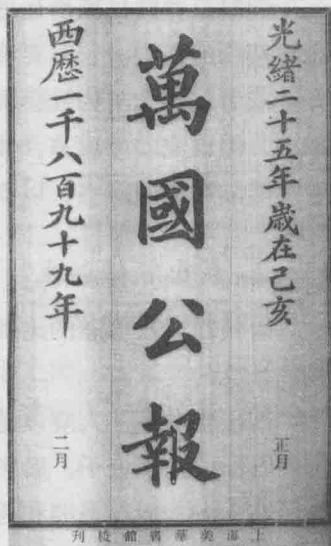 光緒二十五年歲在己亥
正月
萬國公報
西歷一千八百九十九年
二月
上海美華書館校刊